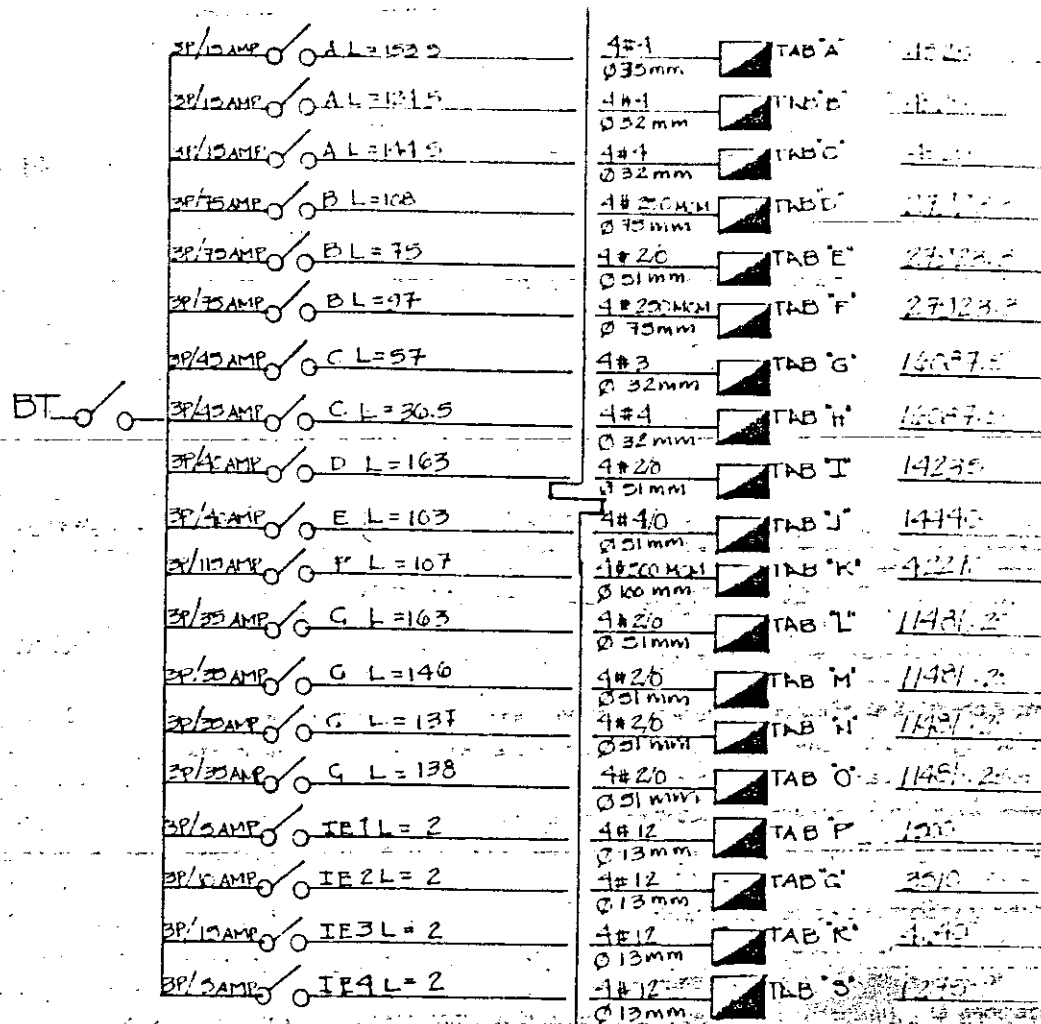 3P/15AMP A L=153.5 4#4 Ø35mm TAB "A"
3P/15AMP A L=131.5 4#4 Ø32mm TAB "B"
3P/15AMP A L=141.5 4#4 Ø32mm TAB "C"
3P/75AMP B L=108 4#250MCM Ø75mm TAB "D"
3P/75AMP B L=75 4#2/0 Ø51mm TAB "E" 27123.3
3P/75AMP B L=97 4#250MCM Ø75mm TAB "F" 27123.3
3P/45AMP C L=57 4#3 Ø32mm TAB "G" 16087.5
BT 3P/45AMP C L=36.5 4#4 Ø32mm TAB "H" 16087.5
3P/40AMP D L=163 4#2/0 Ø51mm TAB "I" 14235
3P/40AMP E L=163 4#4/0 Ø51mm TAB "J" 14440
3P/115AMP F L=107 4#500MCM Ø100mm TAB "K"
3P/35AMP G L=163 4#2/0 Ø51mm TAB "L" 11481.2
3P/35AMP G L=146 4#2/0 Ø51mm TAB "M" 11481.2
3P/35AMP G L=137 4#2/0 Ø51mm TAB "N" 11481.2
3P/35AMP G L=138 4#2/0 Ø51mm TAB "O" 11481.2
3P/5AMP IE1 L=2 4#12 Ø13mm TAB "P" 1500
3P/10AMP IE2 L=2 4#12 Ø13mm TAB "Q" 3510
3P/15AMP IE3 L=2 4#12 Ø13mm TAB "R"
3P/5AMP IE4 L=2 4#12 Ø13mm TAB "S" 1275